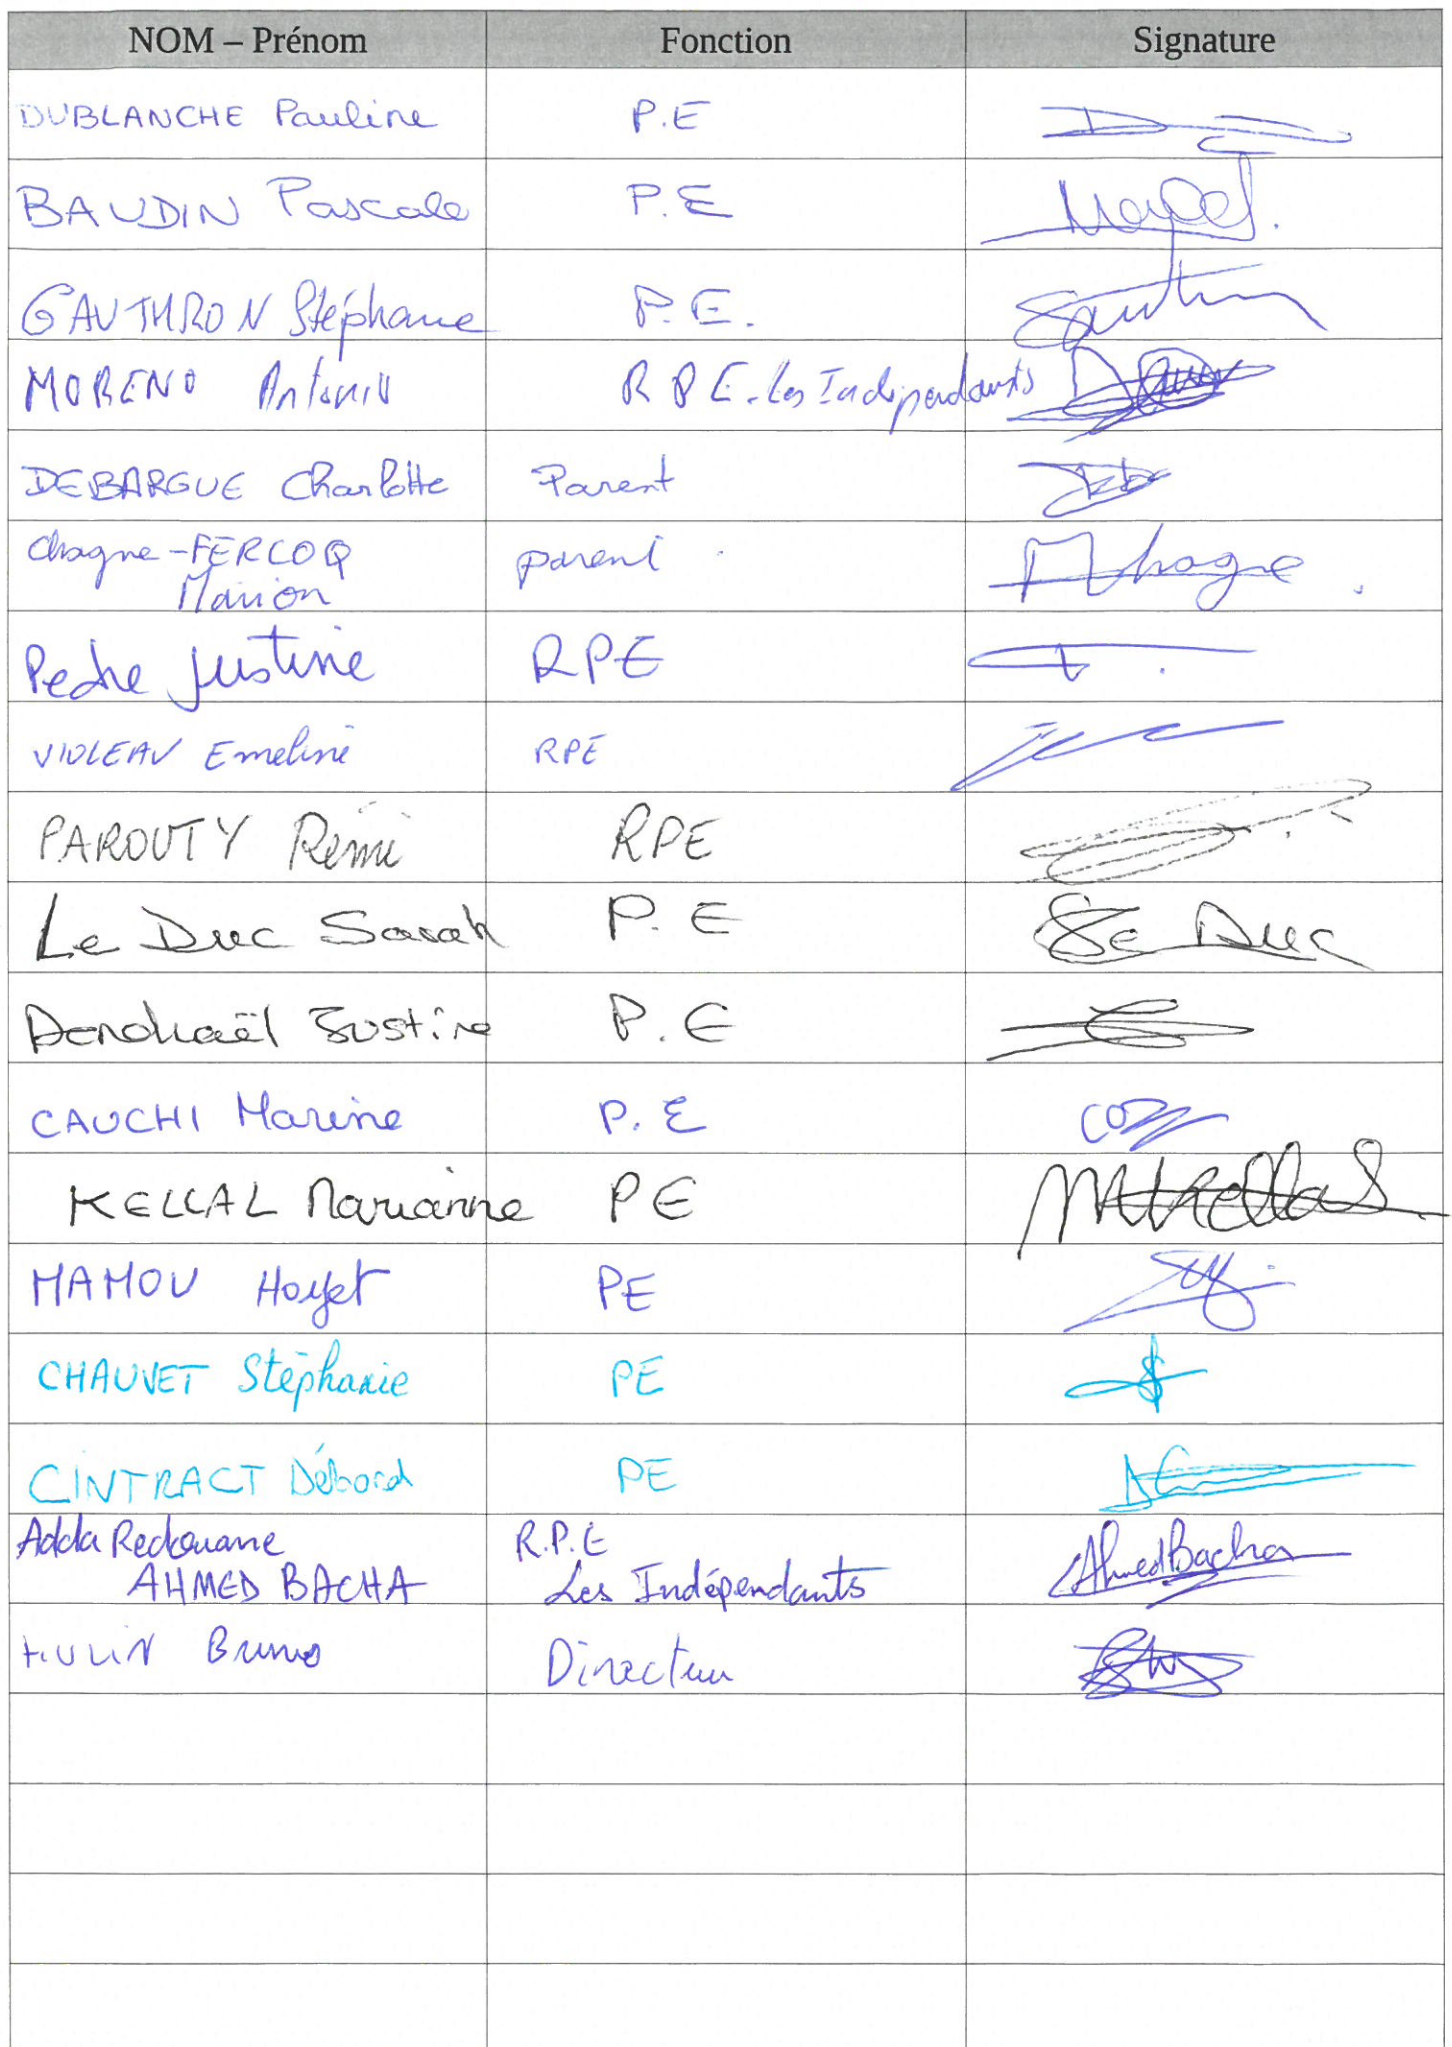 NOM – Prénom Fonction Signature
DUBLANCHE Pauline P.E
BAUDIN Pascale P.E
GAUTHRON Stéphane P.E.
MORENO Antonio R P E. Les Indépendants
DEBARGUE Charlotte Parent
Chagne-FERCOQ parent Mhagne
Marion
Pedre Justine RPE
VIOLEAU Emeline RPE
PAROUTY Rémi RPE
Le Duc Sarah P.E Le Duc
Justine P.E
CAUCHI Marine P.E
KELLAL Marianne PE
MAMOU Hayet PE
CHAUVET Stéphanie PE
CINTRACT Déborah PE
Adda Redouane R.P.E AhmedBacha
AHMED BACHA Les Indépendants
HULIN Bruno Directeur